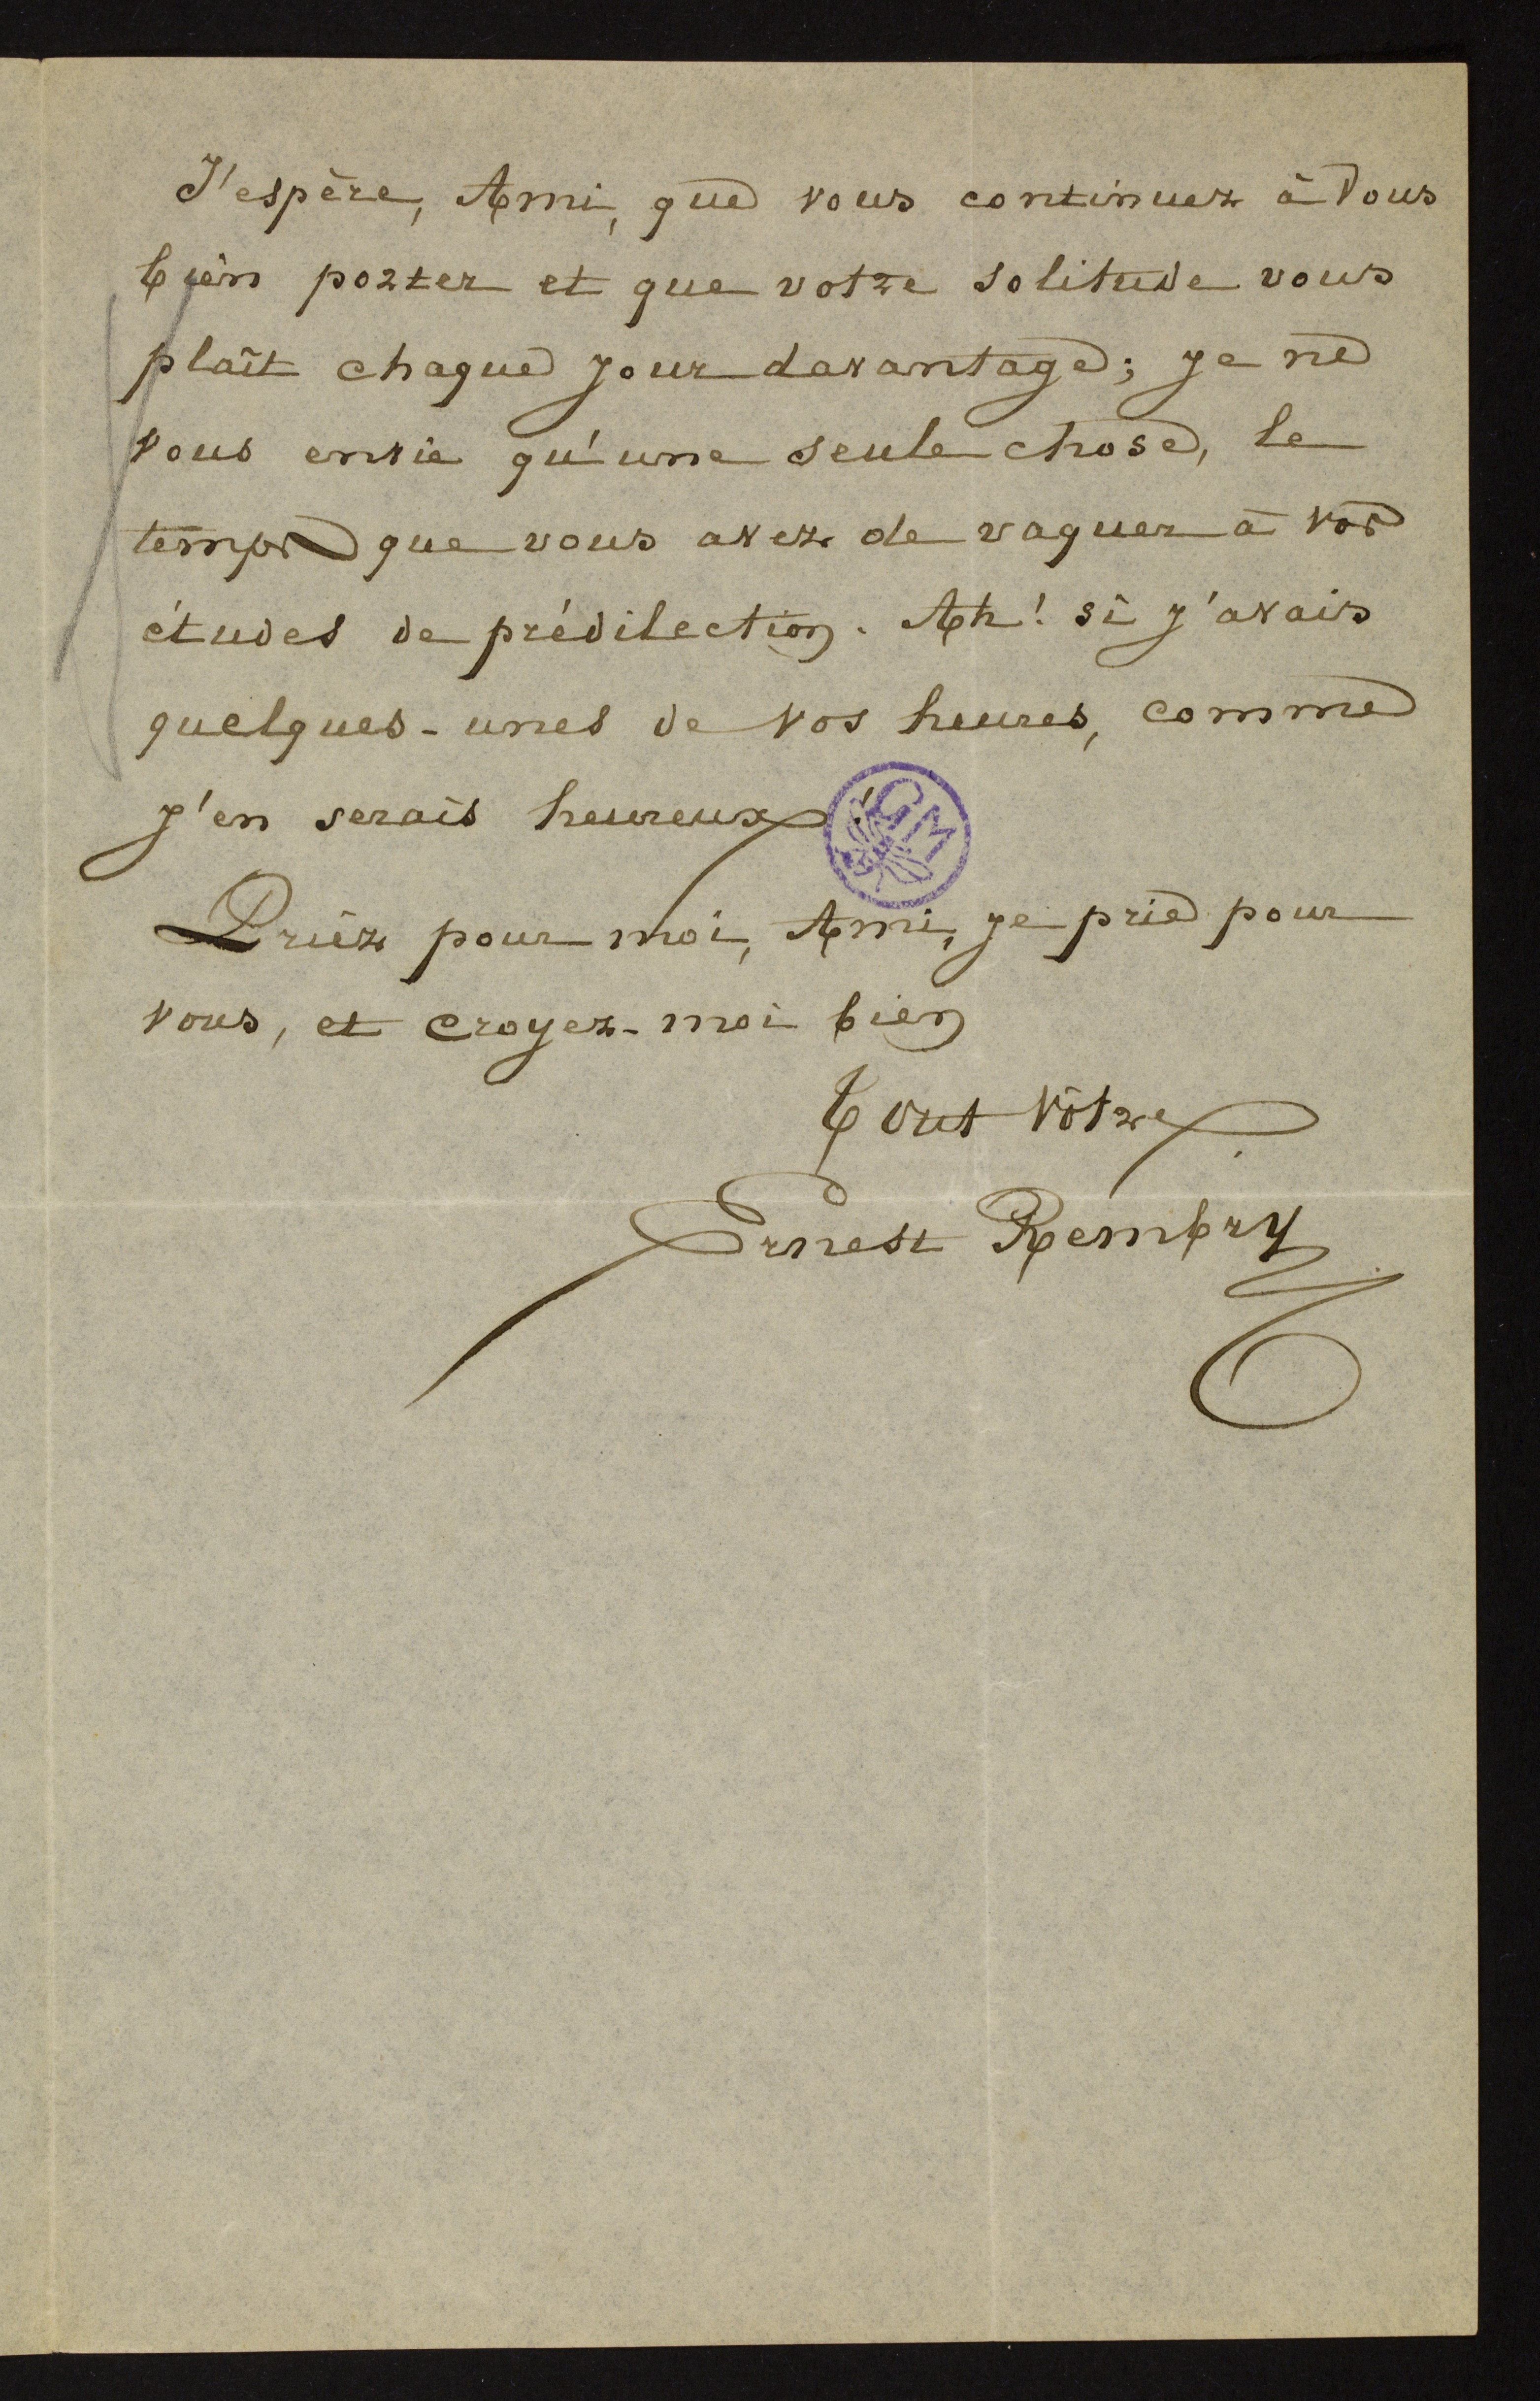 J'espère, Ami, que vous continuez à Vous
bien porter et que votre solitude vous
plaît chaque jour davantage; je ne
vous envie qu'une seule chose, le
temps que vous avez de vaquer à vos
études de prédilection. Ah! si j'avais
quelques-unes de vos heures, comme
j'en serais heureux!
GM
Priez pour moi, Ami, je prie pour
vous, et croyez-moi bien
Tout Vôtre
Ernest Rembry